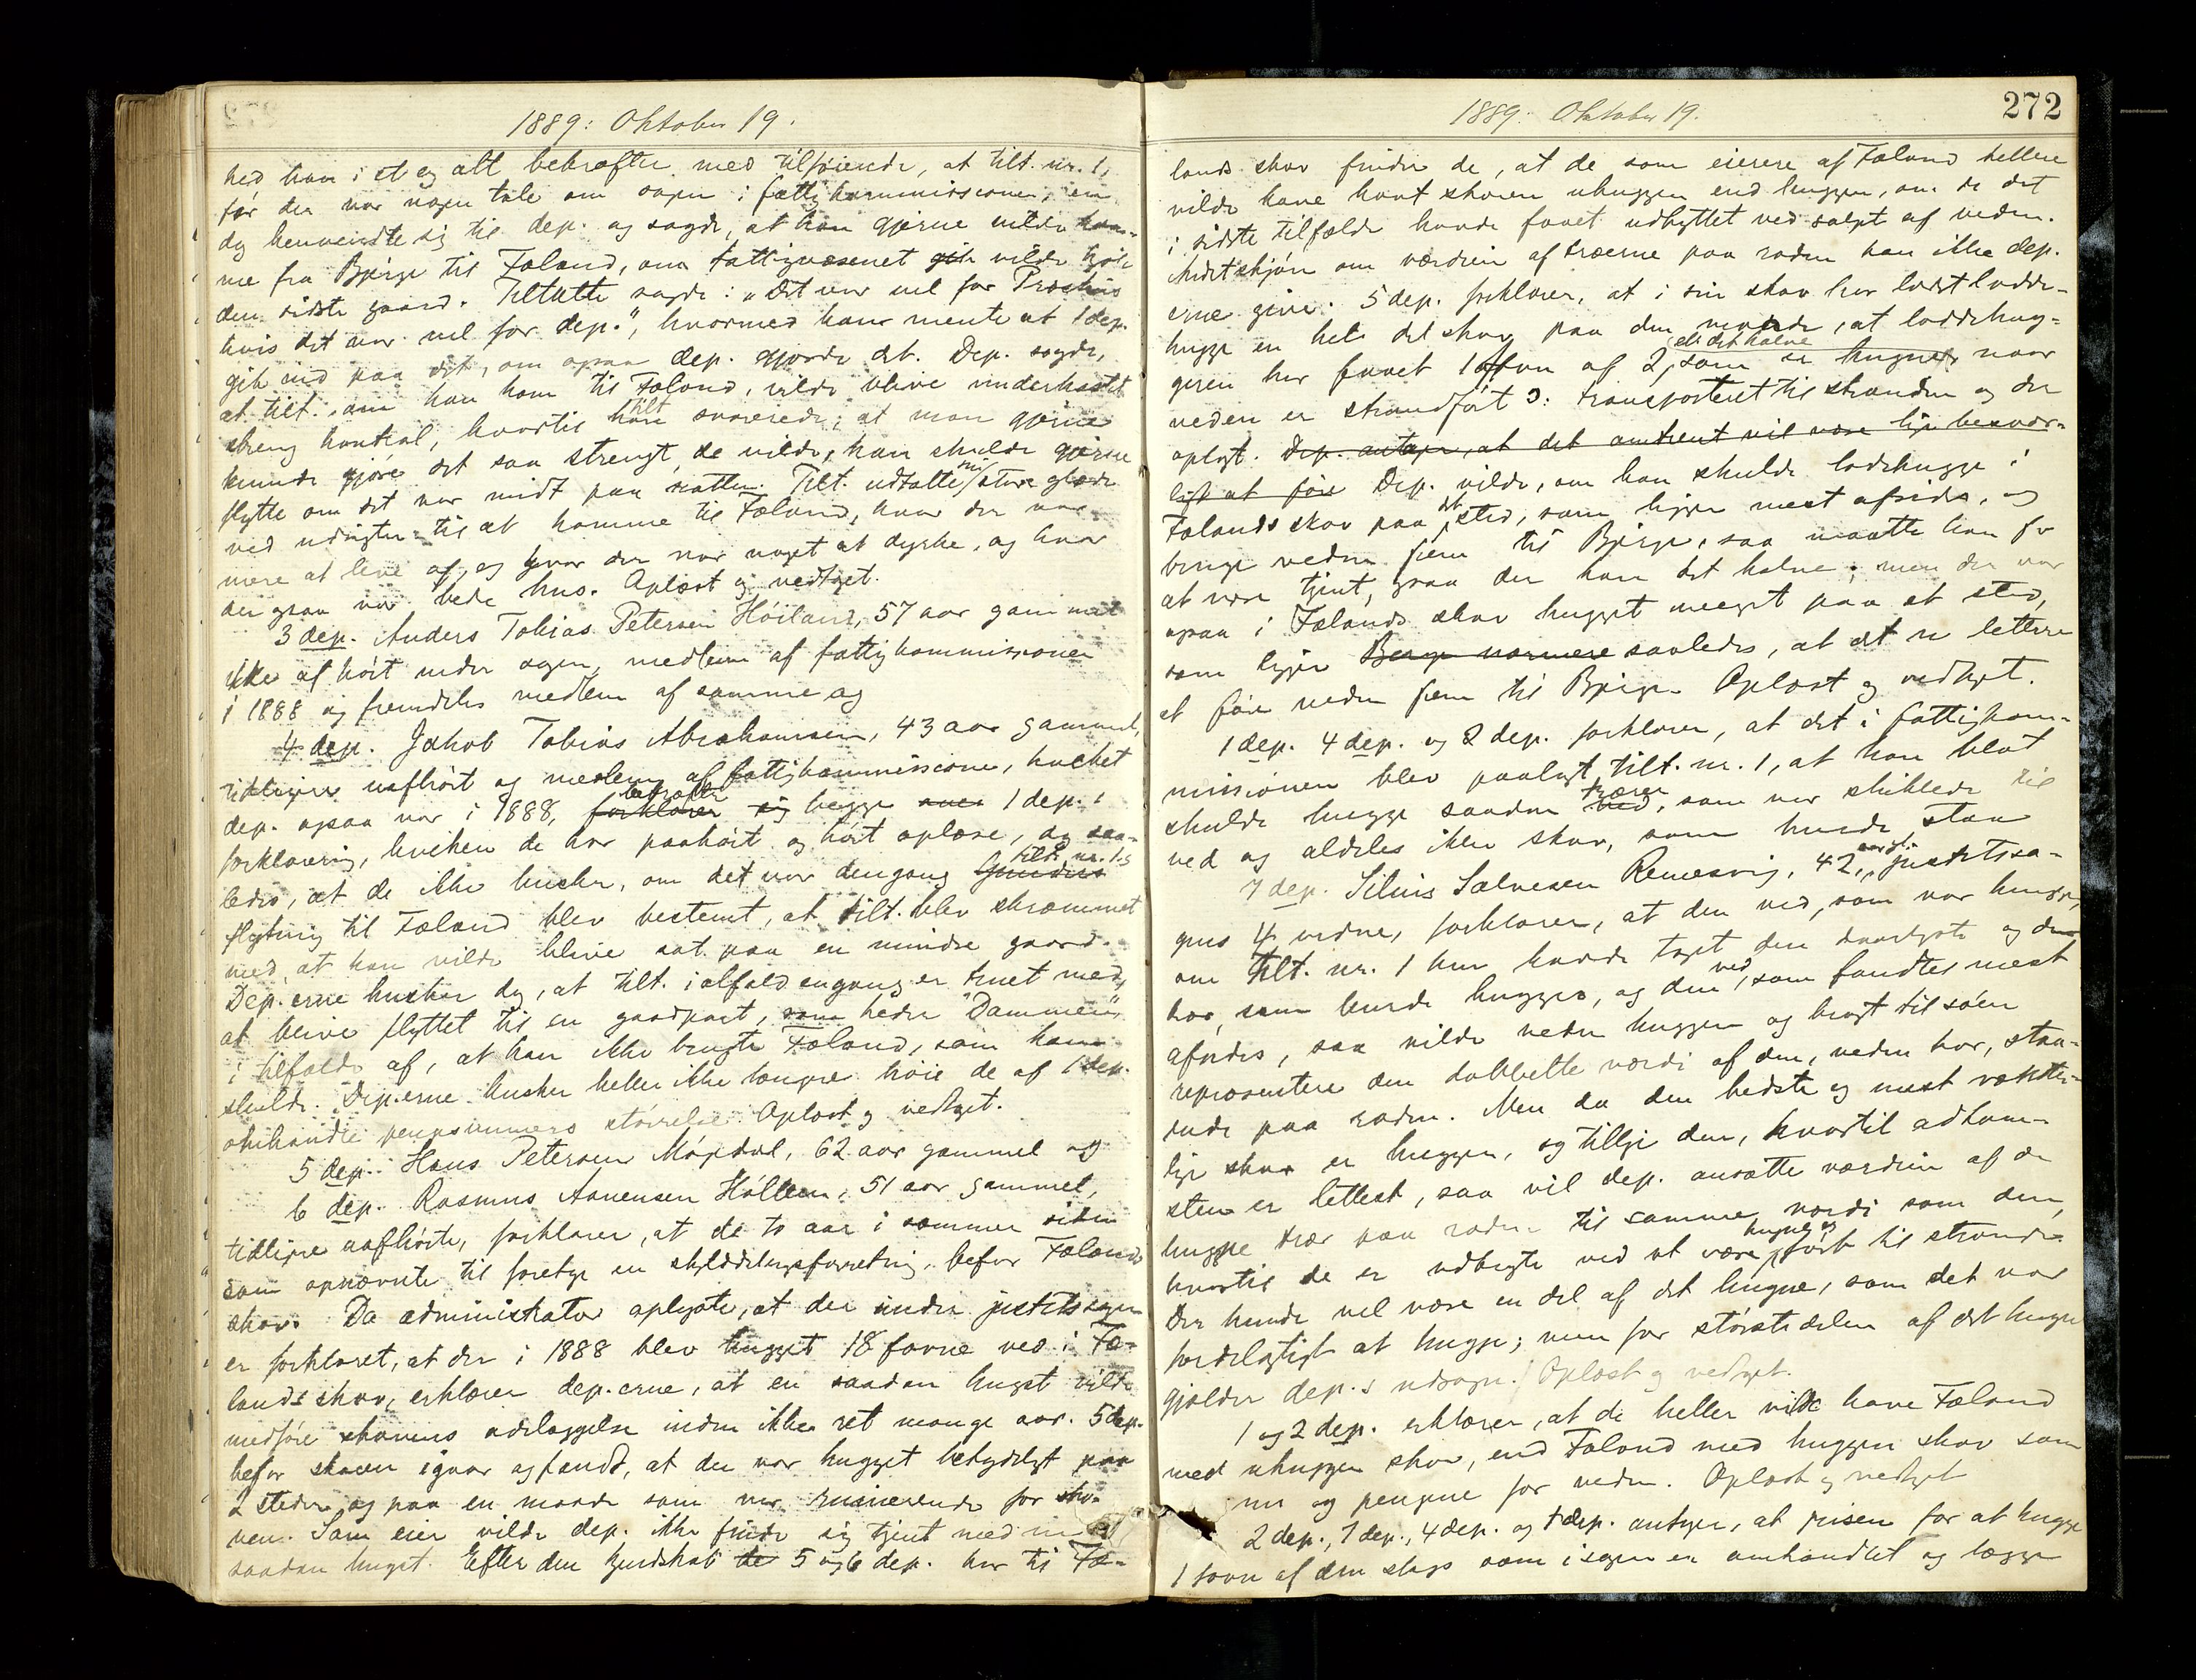 1889: Oktober 19.
hed han i et og alt bekræfter med tilføiende, at tilt. nr. 1,
før der var nogen tale om sagen i fattigkommissionen, en
dag henvendte sig til dep. og sagde, at han gjerne vilde kom-
me fra Bjerge til Fæland, om fattigvæsenet gik vilde kjøbe
den sidste gaard. Tiltalte sagde: „Det var vel for
hvis det var vel for dep.", hvormed han mente at 1 dep.
gik ind paa det, om ogsaa dep. gjorde det. Dep. sagde,
at tilt., om han kom til Fæland, vilde blive underkastet
streng kontrol, hvortil han tilt. svarede, at man gjerne
kunde gjøre det saa strengt de vilde, han skulde gjerne
flytte om det var midt paa natten. Tilt. udtalte sin store glæde
ved udsigten til at komme til Fæland, hvor der var
mere at leve af, og hvor der var noget at dyrke, og hvor
der ogsaa var bedre hus. Oplæst og vedtaget.
3 dep. Anders Tobias Petersen Høiland, 57 aar gammel
ikke afhørt under sagen, medlem af fattigkommissionen
i 1888 og fremdeles medlem af samme og
4 dep. Jakob Tobias Abrahamsen, 43 aar gammel,
tidligere uafhørt og medlem af fattigkommissione, hvilket
dep. ogsaa var i 1888, forklarer sig bekræfter begge 1 dep.s
forklaring, hvilken de har paahørt og hørt oplæse, dog saa-
ledes, at de ikke husker, om det var dengang tilt. nr. 1.s
flytning til Fæland blev bestemt, at tilt. blev skræmmet
med, at han vilde blive sat paa en mindre gaard.
Dep.erne husker dog, at tilt. ialfald engang er truet med
at blive flyttet til en gaardpart, som heder "Dammen"
i tilfælde af, at han ikke brugte Fæland, som han
skulde. Dep.erne husker heller ikke længere høie de af 1 dep.
omhandlede pengesummers størrelse. Oplæst og vedtaget.
5 dep. Hans Petersen Møgdal, 62 aar gammel og
6 dep. Rasmus Aanensen Høllen, 51 aar gammel,
tidligere uafhørte, forklarer, at de to aar i sommer siden
som opnævnte til foretage en skylddelingsforretning, befor Fælands
skov. Da administrator oplyste, at der under justitssagen
er forklaret, at der i 1888 blev hugget 18 favne ved i Fæ-
lands skov, erklærer dep.erne, at en saadan hugst vilde
medføre skovens ødelæggelse inden ikke ret mange aar. 5 dep.
befor skoven igaar og fandt, at der var hugget betydeligt paa
2 steder og paa en maade som var ruinerende for sko-
ven. Som eier vilde dep. ikke finde sig tjent med en
saadan hugst. Efter den kjendskab de 5 og 6 dep. har til Fæ-
1889: Oktober 19.
272
lands skov finder de, at de som eiere af Fæland hellere
vilde have havt skoven uhuggen end huggen, om de det
i sidste tilfælde havde faaet udbyttet ved salget af veden.
Andet skjøn om værdien af træerne paa roden kan ikke dep.
erne give. 5 dep. forklarer, at i sin skov har ladet lodde-
hugge en hel del skov paa den maade, at loddehug-
geren har faaet 1 favn af 2, el. det halve som er hugnet, naar
veden er strandført ɔ: transporteret til stranden og der
oplagt. Dep. antager, at det omtrent vil være lige besvær-
ligt at føre Dep. vilde, om han skulde lodehugge i
Fælands skov paa et sted, som ligger mest afsides, og
bringe veden frem til Bjerge, saa maatte han for
at være tjent, ogsaa der have det halve; men der var
ogsaa i Fælands skov hugget meget paa et sted,
som ligger Berge nærmere saaledes, at det er lettere
at føre veden frem til Bjerge. Oplæst og vedtaget.
1 dep. 4 dep. og 2 dep. forklarer, at det i fattigkom-
missionen blev paalagt tilt. nr. 1, at han blot
skulde hugge saadan ved, træer som var skikkede til
ved og aldeles ikke skov, som burde staa
7 dep. Silius Salvesen Remesvig, 42 aar gl., justitssa-
gens 4 vidne, forklarer, at den ved, som var huggen,
om tilt. nr. 1 kun havde taget den daarligste og den
hos, som burde hugges, og den ved, som fandtes mest
afsides, saa vilde veden huggen og bragt til søen
repræsentere den dobbelte værdi af den, veden har, staa-
ende paa roden. Men da den bedste og mest væxter-
lige skov er huggen, og tillige den, hvortil adkom-
sten er lettest, saa vil dep. ansætte værdien af de
hugne træer paa roden til samme værdi som den,
hvortil de er udbragte ved at være hugne og ført til stranden.
Der kunde vel være en del af det hugne, som det var
fordelagtigt at hugge; men for størstedelen af det hugne
gjælder dep.s udsagn. Oplæst og vedtaget.
1 og 2 dep. erklærer, at de heller vilde have Fæland
med uhuggen skov, end Fæland med huggen skov som
nu og pengene for veden. Oplæst og vedtaget
2 dep., 7 dep., 4 dep. og 1 dep. antager, at prisen for at hugge
1 favn af den slags som i sagen er omhandlet og lægge